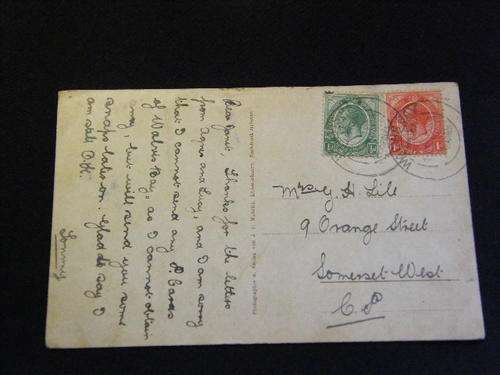 Dear Janet, Thanks for the letters
from Agnes and Lucy, and I am sorry
that I cannot send any P. Cards
of Walvis Bay, as I cannot obtain
any, but will send you some
snaps later on. Glad to say I
am still O.K.
Sonny
G. H. Lile
9 Orange Street
Somerset West
C. P